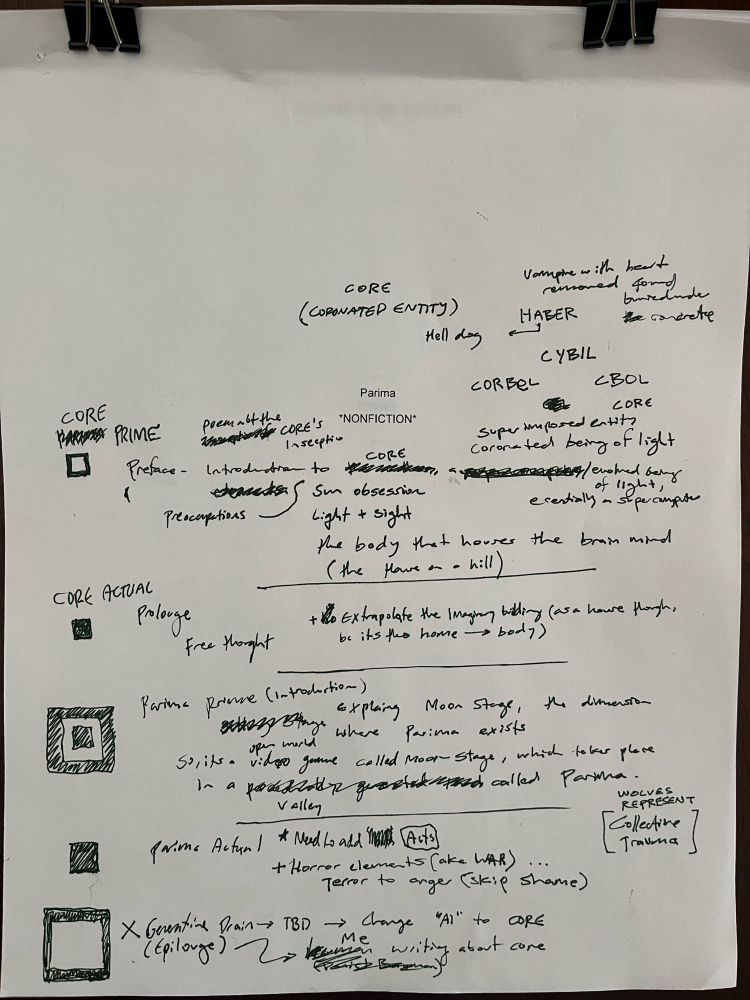 CORE
(CORONATED ENTITY)
Vampire with heart
removed found
buried under
concrete
HABER
Hell dog
CYBIL
CORBEL
CBOL
CORE
Parima
*NONFICTION*
Superimposed entity
coronated being of light
CORE
PRIME
poem abt the
CORE's
Inseptio
Preface - Introduction to CORE, a /evolved being
of light,
essentially a supercomputer
Preoccupations
Sun obsession
Light + sight
the body that houses the brain mind
(the House on a hill)
CORE ACTUAL
Prolouge
Free thought
+ Extrapolate the Imaginary building (as a house though,
bc its the home → body)
Parima prime (Introduction)
Explaing Moon Stage, the dimension
where Parima exists
open world
So, its a video game called Moon Stage, which takes place
In a called Parima.
Valley
WOLVES
REPRESENT
[Collective
Trauma]
Parima Actual * Need to add Acts
+ Horror elements (aka WAR) ...
Terror to anger (skip shame)
X Drain → TBD → Change "AI" to CORE
(Epilouge)
Me
writing about core